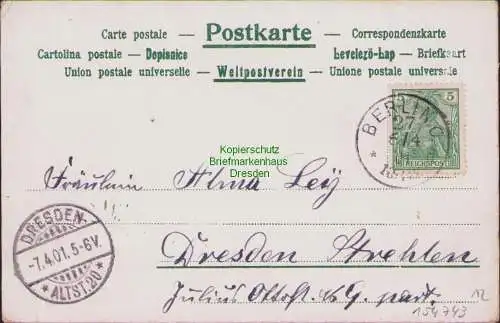 Carte postale — Postkarte — Correspondenzkarte
Cartolina postale — Dopisnice Levelező-Lap — Briefkaart
Union postale universelle — Weltpostverein — Unione postale universale
5
REICHSPOST
BERLIN O
27
6/4
Kopierschutz
Briefmarkenhaus
Dresden
Fräulein Alma Ley
DRESDEN.
-7.4.01. 5-6V.
* ALTST. 20 *
Dresden Strehlen
Julius Ottostr. part.
12
154743